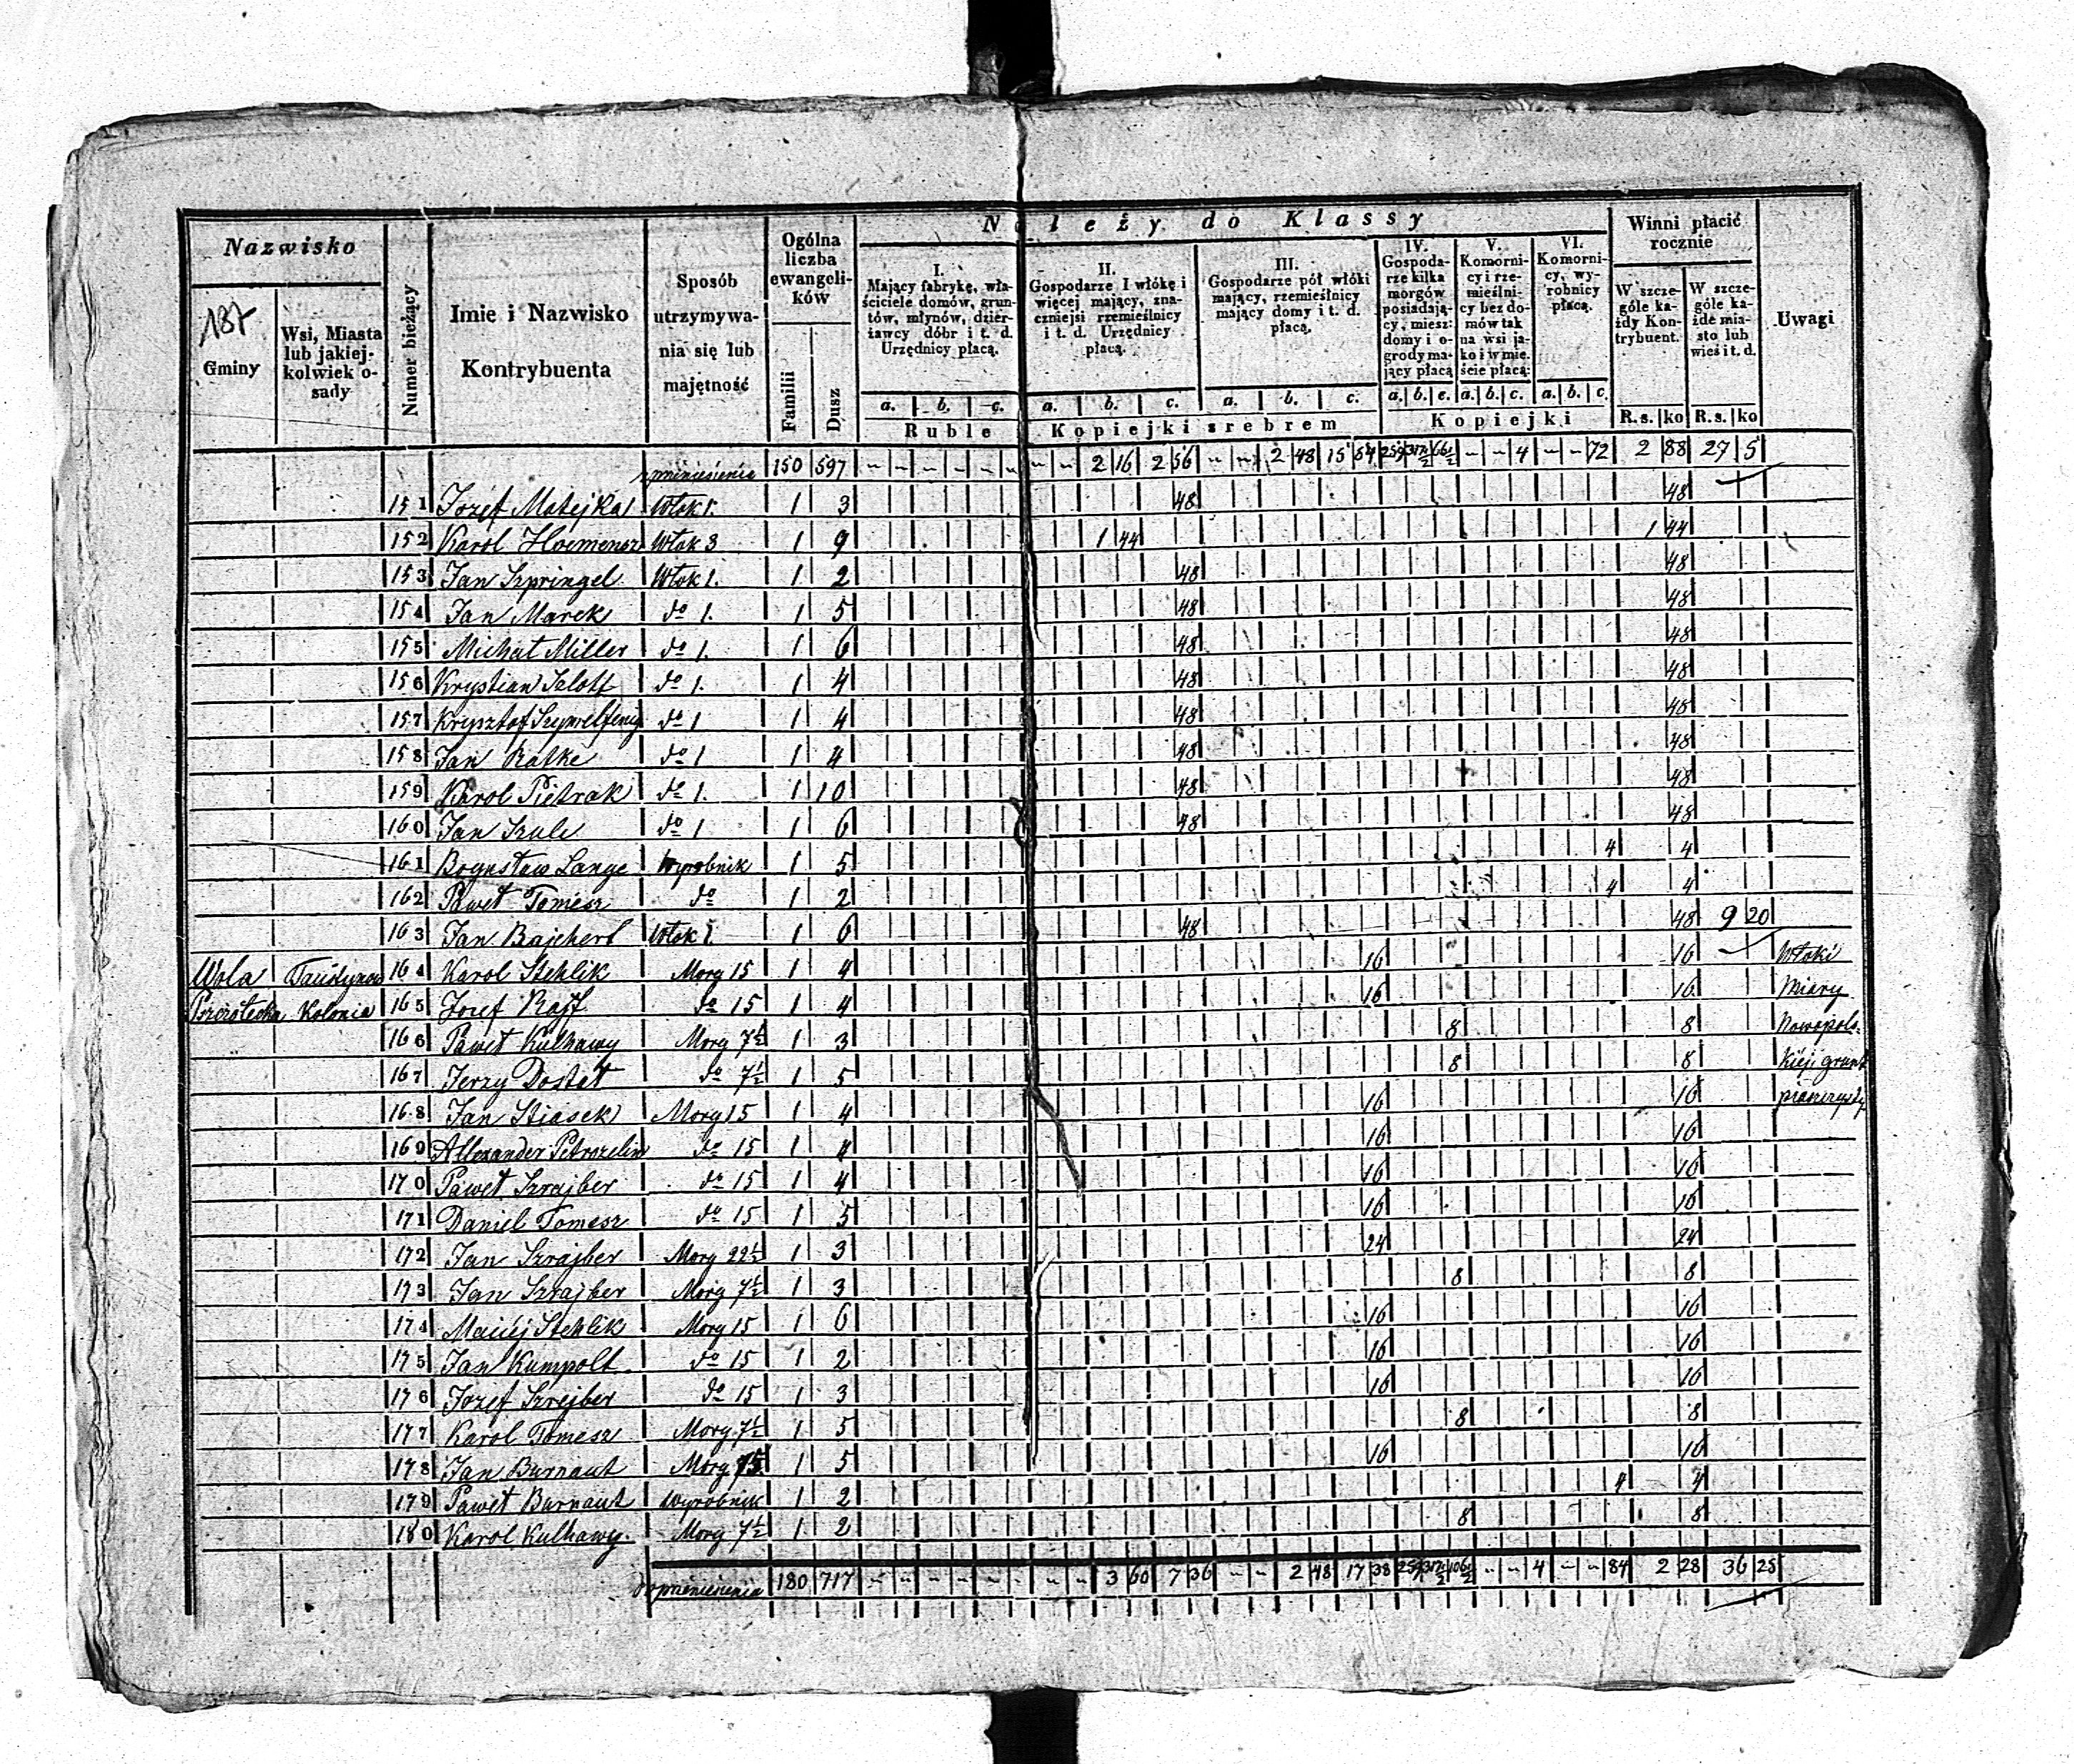 Należy do Klassy
Nazwisko
Gminy
Wsi, Miasta lub jakiej-kolwiek o-sady
Numer bieżący
Imie i Nazwisko Kontrybuenta
Sposób utrzymywa-nia się lub majętność
Ogólna liczba ewangeli-ków
Familii
Dusz
I. Mający fabrykę, wła-ściciele domów, grun-tów, młynów, dzier-żawcy dóbr i t. d. Urzędnicy płacą.
II. Gospodarze 1 włókę i więcej mający, zna-czniejsi rzemieślnicy i t. d. Urzędnicy płacą.
III. Gospodarze pół włóki mający, rzemieślnicy mający domy i t. d. płacą.
IV. Gospoda-rze kilka morgów posiadają-cy, miesz: domy i o-grody ma-jący płacą
V. Komorni-cy i rze-mieślni-cy bez do-mów tak na wsi ja-ko i w mie-ście płacą:
VI. Komorni-cy, wy-robnicy płacą.
Winni płacić rocznie
W szcze-góle ka-żdy Kon-trybuent.
W szcze-góle ka-żde mia-sto lub wieś i t. d.
Uwagi
a. b. c. a. b. c. a. b. c. a. b. c. a. b. c. a. b. c.
Ruble Kopiejki srebrem Kopiejki R.s. ko R.s. ko
z przeniesienia 150 597 2 16 2 56 2 48 15 54 4 72 2 88 27 5
151 Jozef Matejka Włok 1. 1 3 48 48
152 Karol Włok 3 1 9 1 44 1 44
153 Jan Szpringel Włok 1. 1 2 48 48
154 Jan Marek do 1. 1 5 48 48
155 Michał Miller do 1. 1 6 48 48
156 Krystian do 1. 1 4 48 48
157 Krysztof do 1 1 4 48 48
158 Jan Ratke do 1 1 4 48 48
159 Karol Pietrak do 1. 1 10 48 48
160 Jan Szulc do 1 1 6 48 48
161 Bogusław Lange Wyrobnik 1 5 4 4
162 Paweł Tomesz do 1 2 4 4
163 Jan Bajchert Włok 1. 1 6 48 48 9 20
Wola 164 Karol Stehlik Morg 15 1 4 16 16 Włóki
Kolonia 165 Jozef Rajf do 15 1 4 16 16 Miary
166 Paweł Kulhawy Morg 7½ 1 3 8 8 Nowopols.
167 Jerzy Dostał do 7½ 1 5 8 8 kiej, grunt
168 Jan Stiasek Morg 15 1 4 16 16 piaszczysty
169 Allexander Petrozelin do 15 1 4 16 16
170 Paweł Szrajber do 15 1 4 16 16
171 Daniel Tomesz do 15 1 5 16 16
172 Jan Szrajber Morg 22½ 1 3 24 24
173 Jan Szrajber Morg 7½ 1 3 8 8
174 Maciej Stehlik Morg 15 1 6 16 16
175 Jan Kumpolt do 15 1 2 16 16
176 Jozef Szrejber do 15 1 3 16 16
177 Karol Tomesz Morg 7½ 1 5 8 8
178 Jan Burnaut Morg 15 1 5 16 16
179 Paweł Burnaut Wyrobnik 1 2 4 4
180 Karol Kulhawy Morg 7½ 1 2 8 8
do przeniesienia 180 717 3 60 7 36 2 48 17 38 4 84 2 28 36 25